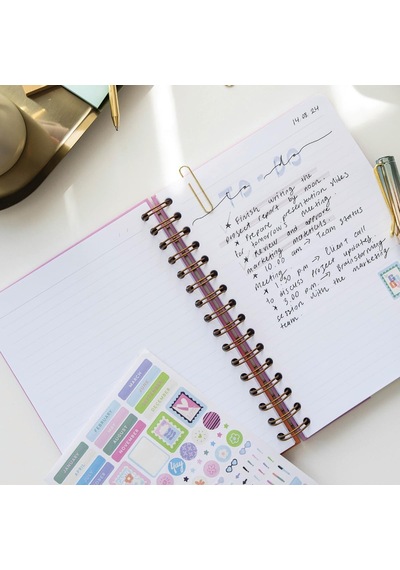 14.08.24
to do
TO-DO
* Finish writing the
project report by noon.
* Prepare presentation slides
for tomorrow's meeting
* Review and approve
marketing materials
* 10.00 am → Team status
Meeting
* 1.30 p.m → Client call
to discuss project updates
* 3.00 p.m. → Brainstorming
session with the marketing
team
JANUARY
FEBRUARY
MARCH
APRIL
AUGUST
NOVEMBER
DECEMBER